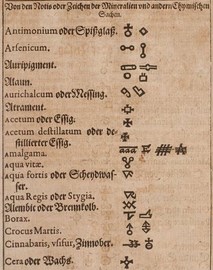 Von den Notis oder Zeichen der Mineralien und andern Chymischen
Sachen.
Antimonium oder Spißglaß.
Arsenicum.
Auripigment.
Alaun.
aurichalcum oder Messing.
Atrament.
acetum oder Essig.
acetum destillatum oder de-
stillierter Essig.
amalgama.
aqua vitæ.
aqua fortis oder Scheydwas-
ser.
aqua Regis oder Stygia.
Alembic oder Brennkolb.
Borax.
Crocus Martis.
Cinnabaris, usifur, Zinnober.
Cera oder Wachs.